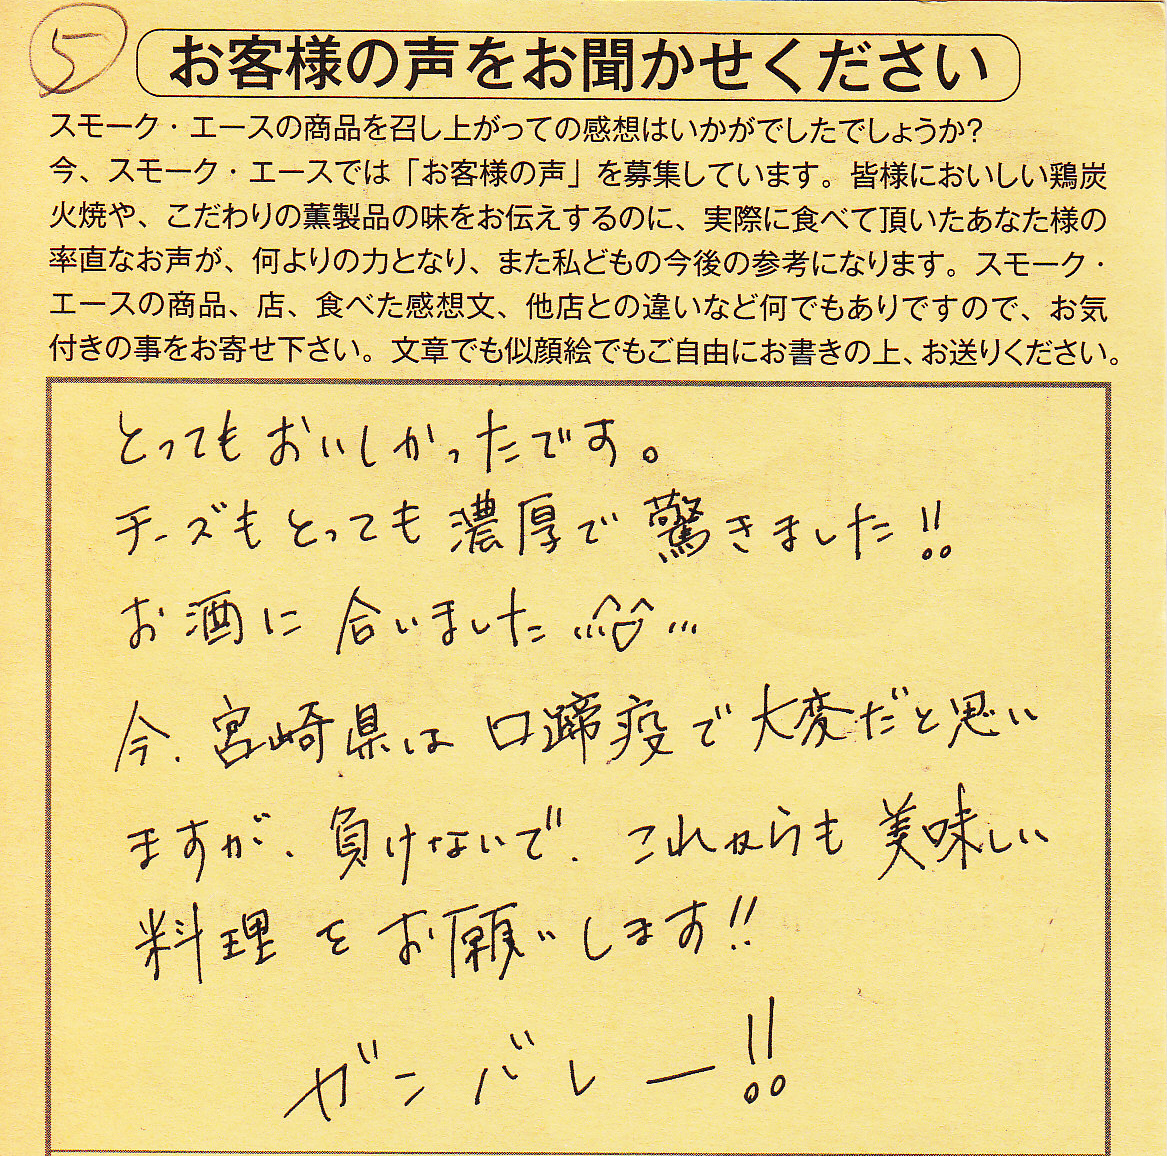 5
お客様の声をお聞かせください
スモーク・エースの商品を召し上がっての感想はいかがでしたでしょうか?
今、スモーク・エースでは「お客様の声」を募集しています。皆様においしい鶏炭
火焼や、こだわりの薫製品の味をお伝えするのに、実際に食べて頂いたあなた様の
率直なお声が、何よりの力となり、また私どもの今後の参考になります。スモーク・
エースの商品、店、食べた感想文、他店との違いなど何でもありですので、お気
付きの事をお寄せ下さい。文章でも似顔絵でもご自由にお書きの上、お送りください。
とってもおいしかったです。
チーズもとっても濃厚で驚きました!!
お酒に合いました
今、宮崎県は口蹄疫で大変だと思い
ますが、負けないで、これからも美味しい
料理をお願いします!!
ガンバレー!!